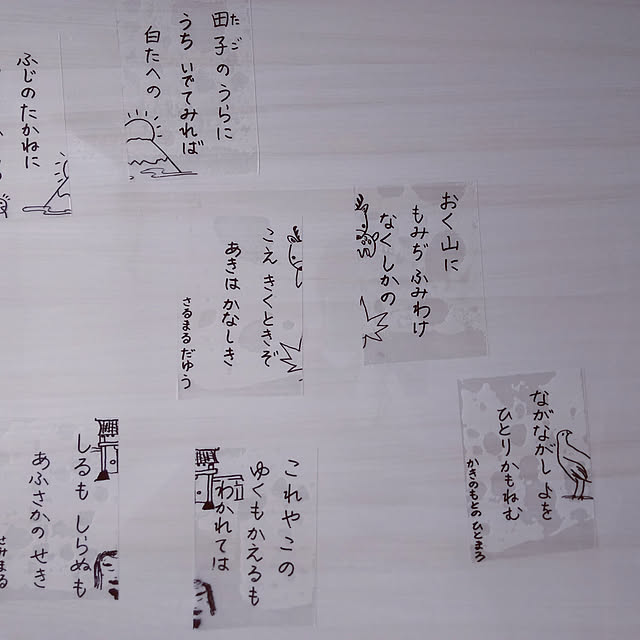 田子のうらに
うち いでてみれば
白たへの
ふじのたかねに
おく山に
もみぢ ふみわけ
なくしかの
こえ きくときぞ
あきは かなしき
さるまる だゆう
ながながし よを
ひとり かもねむ
かきのもとの ひとまろ
これや この
ゆくも かえるも
わかれては
しるも しらぬも
あふさかの せき
せみまる